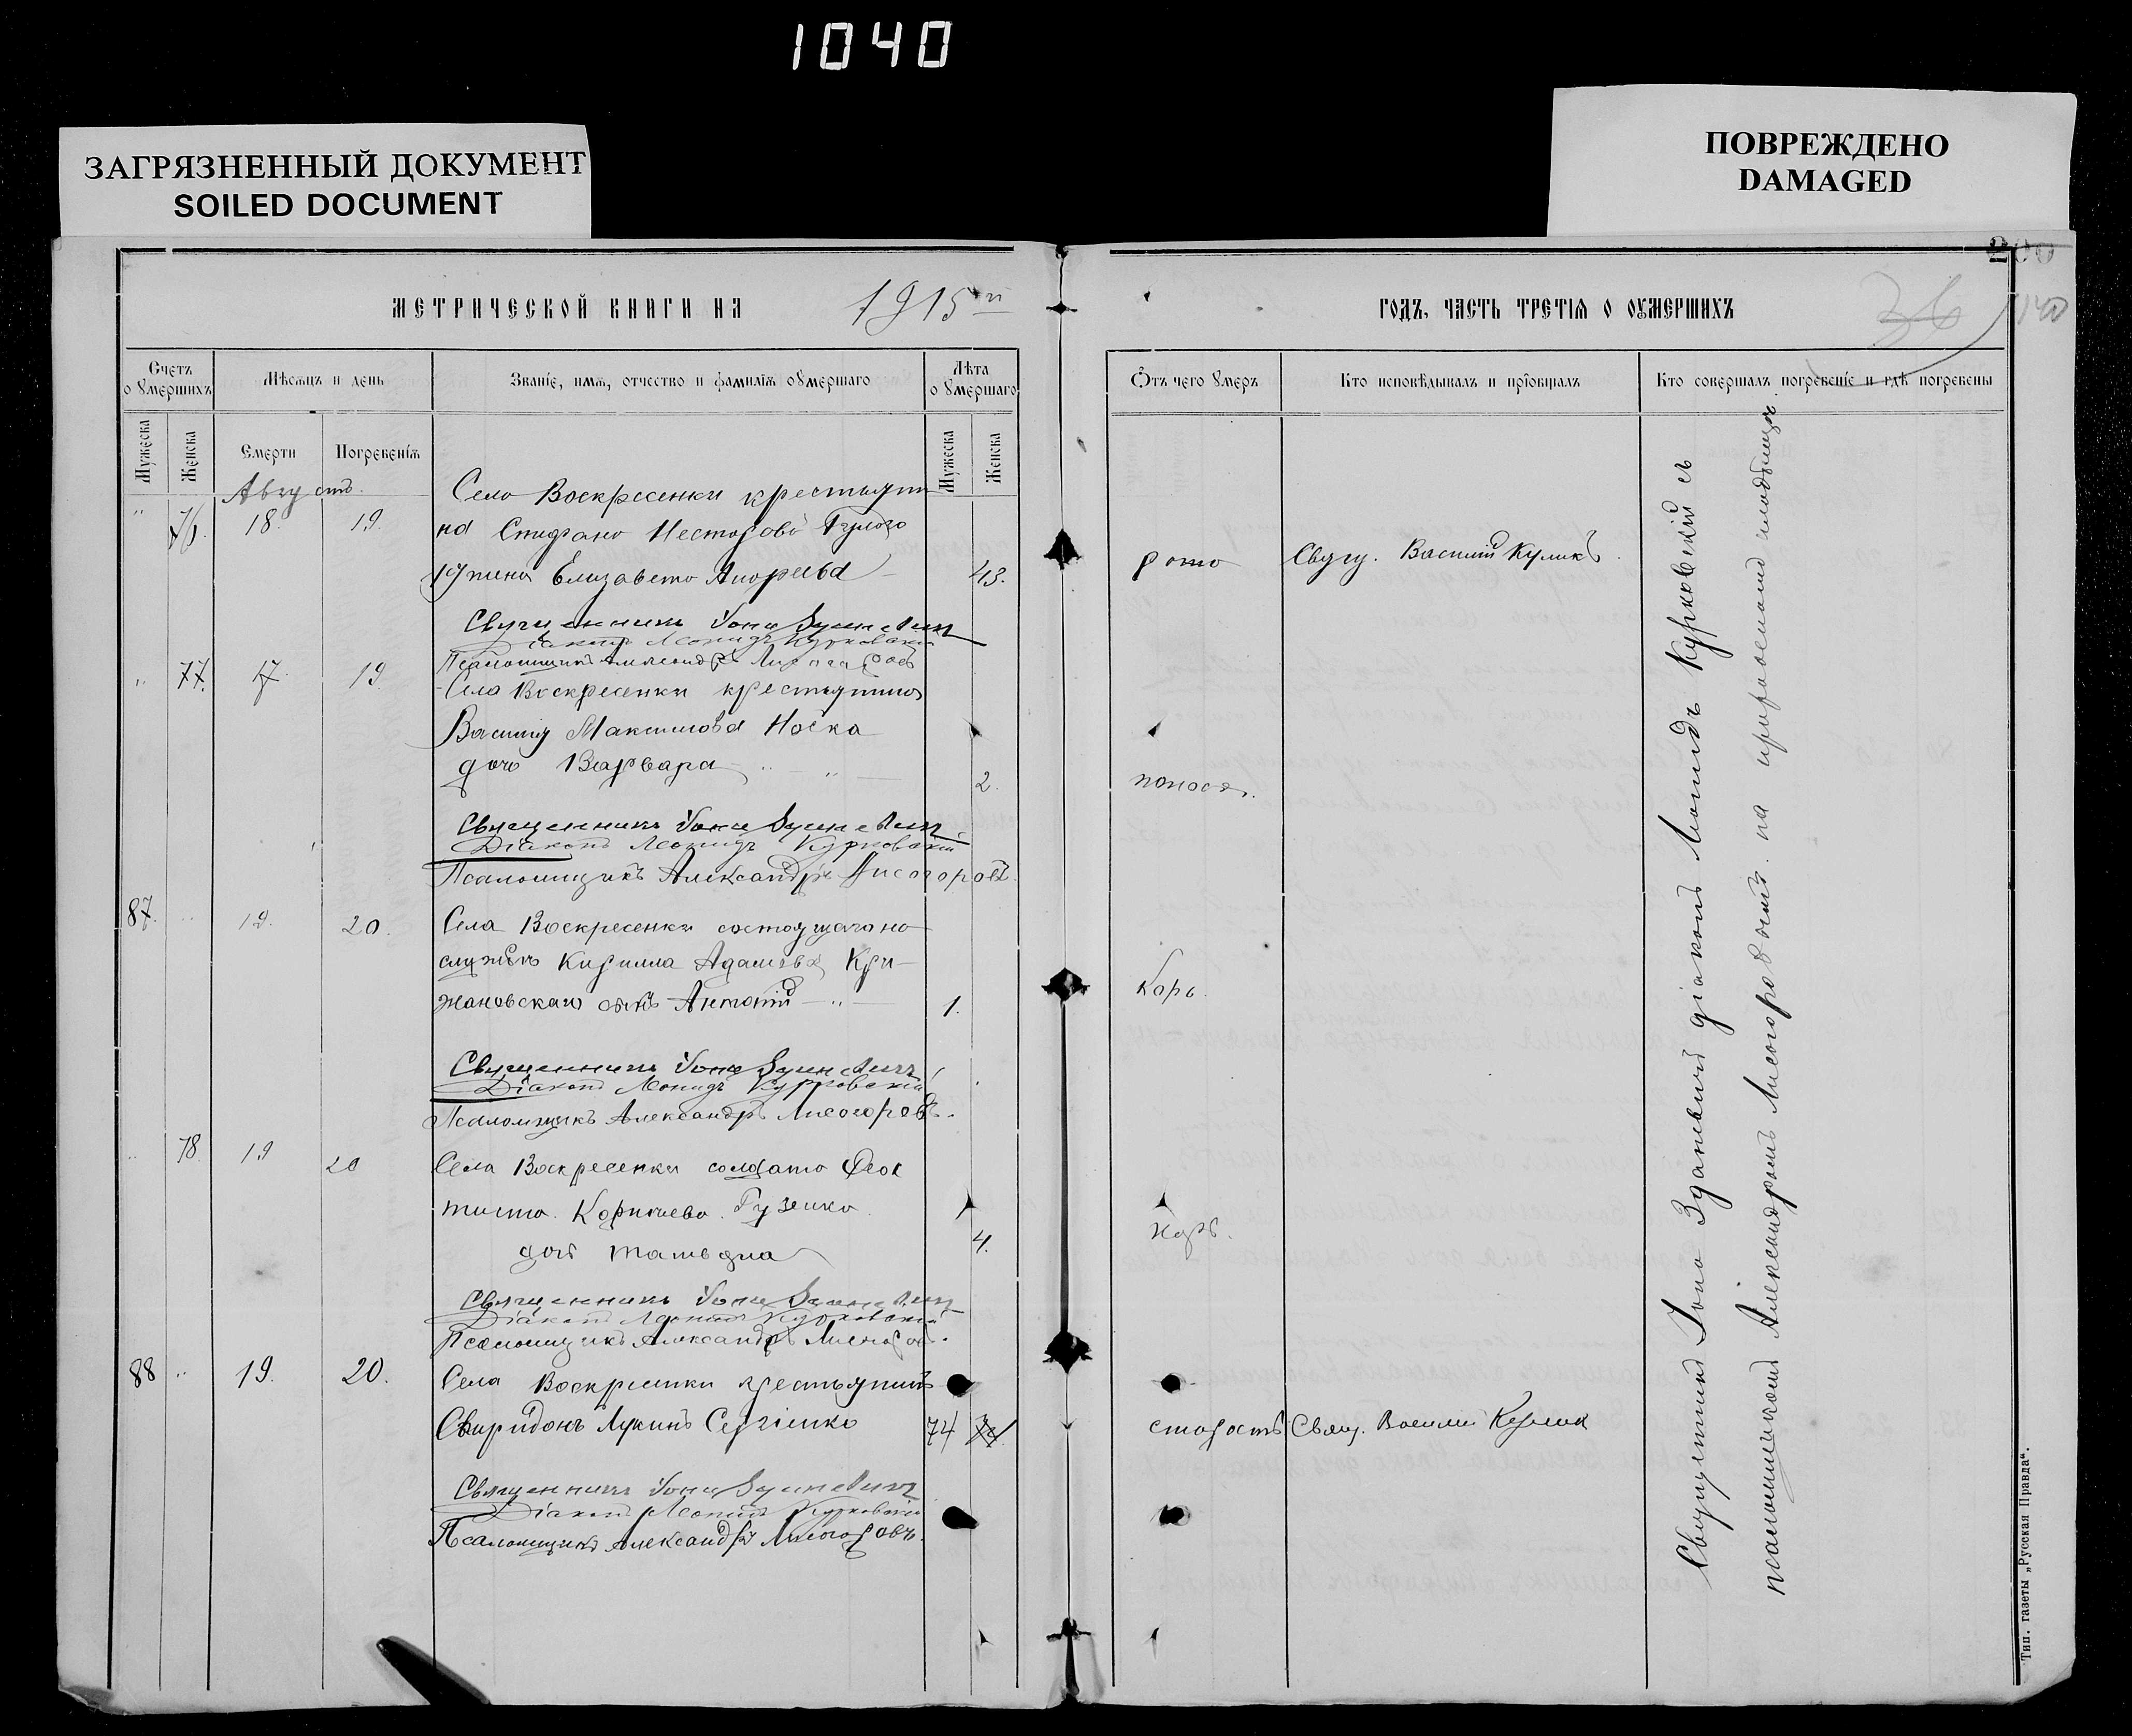 1040
ЗАГРЯЗНЕННЫЙ ДОКУМЕНТ
SOILED DOCUMENT
ПОВРЕЖДЕНО
DAMAGED
МЕТРИЧЕСКОЙ КНИГИ НА 1915
Счетъ о умершихъ
Мѣсяцъ и день
Званіе, имя, отчество и фамилія умершаго
Лѣта умершаго
Мужеска
Женска
Смерти
Погребенія
Мужеска
Женска
Августъ.
76. 18. 19.
Село Воскресенки крестьяни
на Стефана Несторова
жена Елизавета Андреева 43.
Священникъ Іона
Діаконъ Леонидъ Курковскій
Псаломщикъ Александръ Лисогоровъ
77. 17. 19.
Села Воскресенки крестьянина
Василія Максимова Носка
дочь Варвара 2.
Священникъ Іона
Діаконъ Леонидъ Курковскій
Псаломщикъ Александръ Лисогоровъ.
87. 19. 20.
Села Воскресенки состоящаго на
службѣ Кирилла Адамова Кри-
жановскаго сынъ Антоній 1.
Священникъ Іона
Діаконъ Леонидъ Курковскій
Псаломщикъ Александръ Лисогоровъ.
78. 19 20
Села Воскресенки солдата Ѳеок
тиста Корнѣева Гузенка
дочь Татьяна 4.
Священникъ Іона
Діаконъ Леонидъ Курковскій
Псаломщикъ Александръ Лисогоровъ.
88 19. 20.
Села Воскресенки крестьянинъ
Свиридонъ Лукинъ Сергіенко 74
Священникъ Іона
Діаконъ Леонидъ Курковскій
Псаломщикъ Александръ Лисогоровъ.
200
36
140
ГОДЪ, ЧАСТЬ ТРЕТІЯ О УМЕРШИХЪ
Отъ чего умеръ
Кто исповѣдывалъ и пріобщалъ
Кто совершалъ погребеніе и гдѣ погребены
Свящ. Василій Куликъ
поноса.
Корь.
Корь.
старость Свящ. Василій Куликъ
Священникъ Іона Зданевичъ діаконъ Леонидъ Курковскій съ
псаломщикомъ Александромъ Лисогоровымъ на приходскомъ кладбищѣ.
Тип. газеты „Русская Правда“.